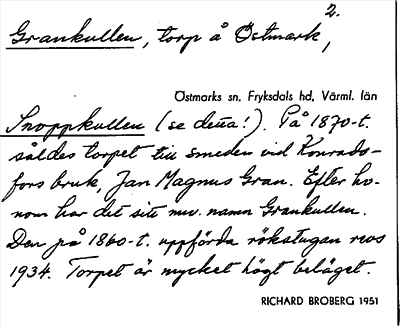 2.
Grankullen, torp å Östmark,
Östmarks sn, Fryksdals hd, Värml. län
Snoppkullen (se detta!). På 1870-t.
såldes torpet till smeden vid Konrads-
fors bruk, Jan Magnus Gran. Efter ho-
nom har det sitt nuv. namn Grankullen.
Den på 1860-t. uppförda rökstugan revs
1934. Torpet är mycket högt beläget.
RICHARD BROBERG 1951